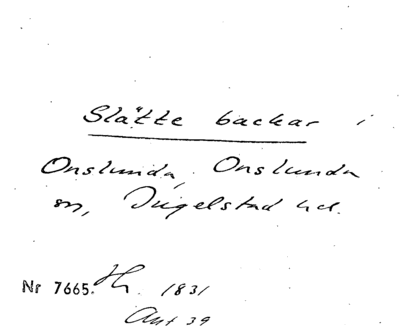 Slätte backar i
Onslunda, Onslunda
sn, Ingelstad hd.
Nr 7665. 1831
Ant 39